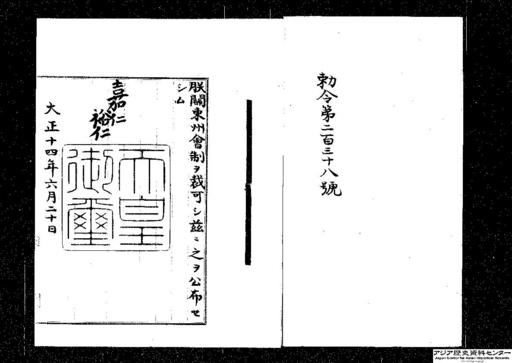 勅令第二百三十八號
朕關東州會制ヲ裁可シ茲ニ之ヲ公布セ
シム
嘉仁
裕仁
天皇
御璽
大正十四年六月二十日
アジア歴史資料センター
Japan Center for Asian Historical Records